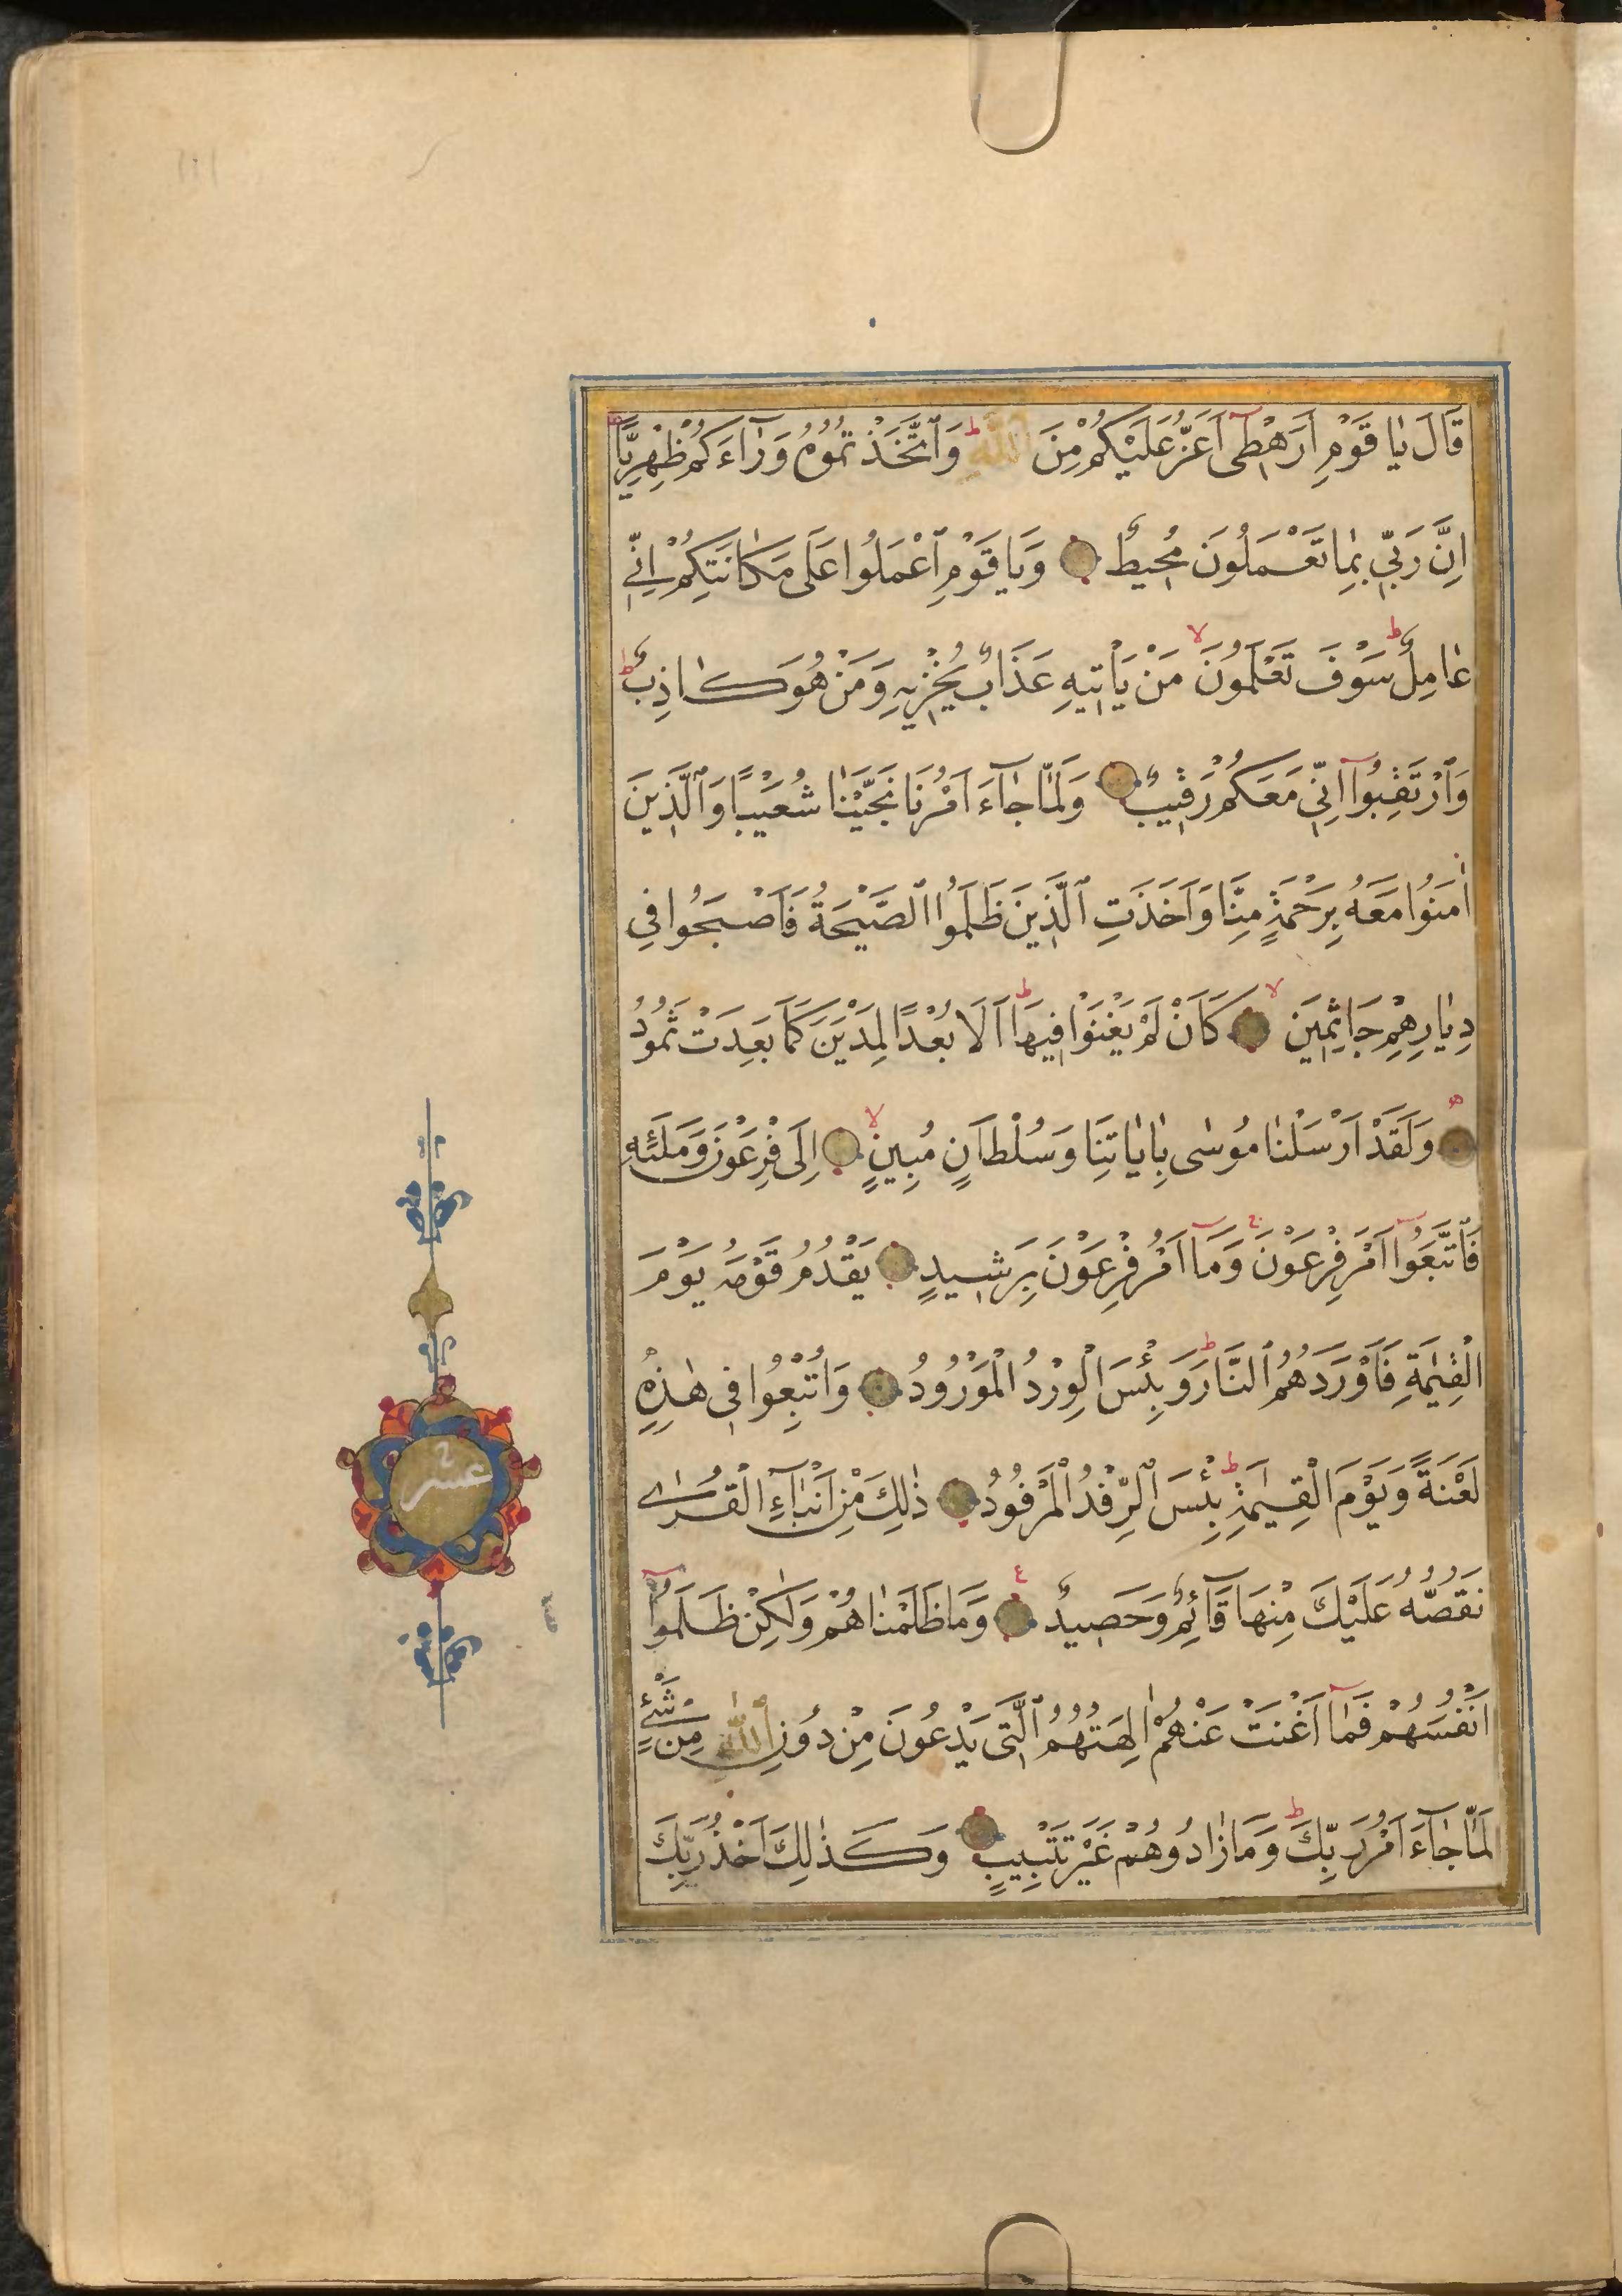 قَالَ يَا قَوْمِ اَرَهْطِىٓ اَعَزُّ عَلَيْكُمْ مِنَ اللّٰهِ ط وَٱتَّخَذْتُمُوهُ وَرَآءَكُمْ ظِهْرِيًّا
اِنَّ رَبِّي بِمَا تَعْمَلُونَ مُحِيطٌ وَيَا قَوْمِ ٱعْمَلُوا عَلَى مَكَانَتِكُمْ اِنِّي
عَامِلٌ ط سَوْفَ تَعْلَمُونَ لا مَنْ يَأْتِيهِ عَذَابٌ يُخْزِيهِ وَمَنْ هُوَ كَاذِبٌ ط
وَٱرْتَقِبُوٓا اِنِّي مَعَكُمْ رَقِيبٌ وَلَمَّا جَآءَ اَمْرُنَا نَجَّيْنَا شُعَيْبًا وَٱلَّذِينَ
اٰمَنُوا مَعَهُ بِرَحْمَةٍ مِنَّا وَاَخَذَتِ ٱلَّذِينَ ظَلَمُوا ٱلصَّيْحَةُ فَاَصْبَحُوا فِي
دِيَارِهِمْ جَاثِمِينَ لا كَاَنْ لَمْ يَغْنَوْا فِيهَا ط اَلَا بُعْدًا لِمَدْيَنَ كَمَا بَعِدَتْ ثَمُودُ
وَلَقَدْ اَرْسَلْنَا مُوسٰى بِاٰيَاتِنَا وَسُلْطَانٍ مُبِينٍ لا اِلٰى فِرْعَوْنَ وَمَلَئِهِ
فَٱتَّبَعُوٓا اَمْرَ فِرْعَوْنَ ج وَمَآ اَمْرُ فِرْعَوْنَ بِرَشِيدٍ يَقْدُمُ قَوْمَهُ يَوْمَ
الْقِيٰمَةِ فَاَوْرَدَهُمُ ٱلنَّارَ ط وَبِئْسَ الْوِرْدُ الْمَوْرُودُ وَاُتْبِعُوا فِى هٰذِهِ
لَعْنَةً وَيَوْمَ الْقِيٰمَةِ ط بِئْسَ ٱلرِّفْدُ الْمَرْفُودُ ذٰلِكَ مِنْ اَنْبَآءِ الْقُرٰى
نَقُصُّهُ عَلَيْكَ مِنْهَا قَآئِمٌ وَحَصِيدٌ ع وَمَا ظَلَمْنَاهُمْ وَلٰكِنْ ظَلَمُوٓا
اَنْفُسَهُمْ فَمَآ اَغْنَتْ عَنْهُمْ اٰلِهَتُهُمُ ٱلَّتِى يَدْعُونَ مِنْ دُونِ ٱللّٰهِ مِنْ شَيْءٍ
لَمَّا جَآءَ اَمْرُ رَبِّكَ ط وَمَا زَادُوهُمْ غَيْرَ تَتْبِيبٍ وَكَذٰلِكَ اَخْذُ رَبِّكَ
عشر